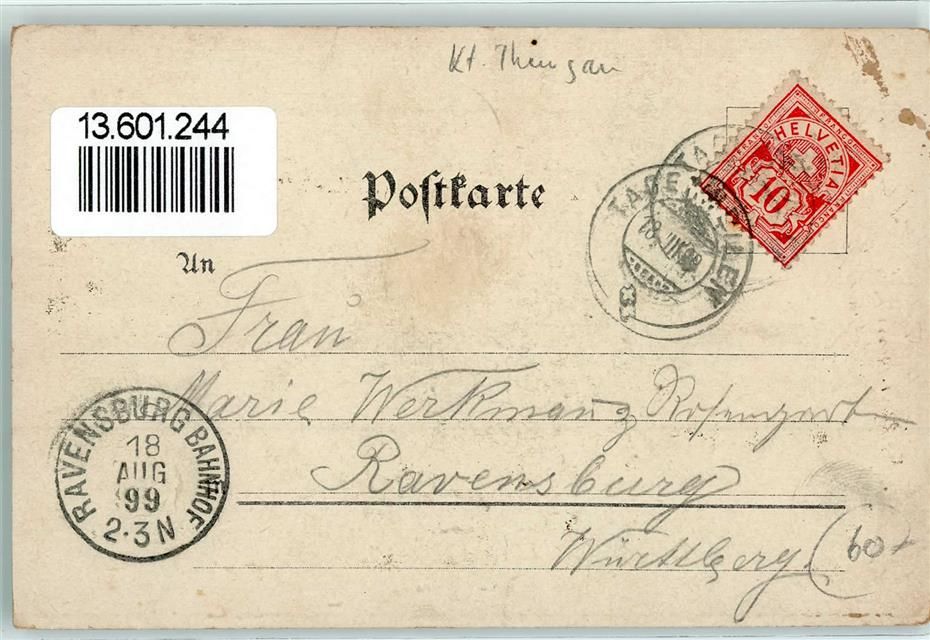 Kt. Thurgau
13.601.244
Postkarte
HELVETIA
FRANCO
10
TAGERWILEN
An
Frau
Marie Werkmann Rosengarten
RAVENSBURG BAHNHOF
18
AUG
99
2-3 N
Ravensburg
Württberg
60+